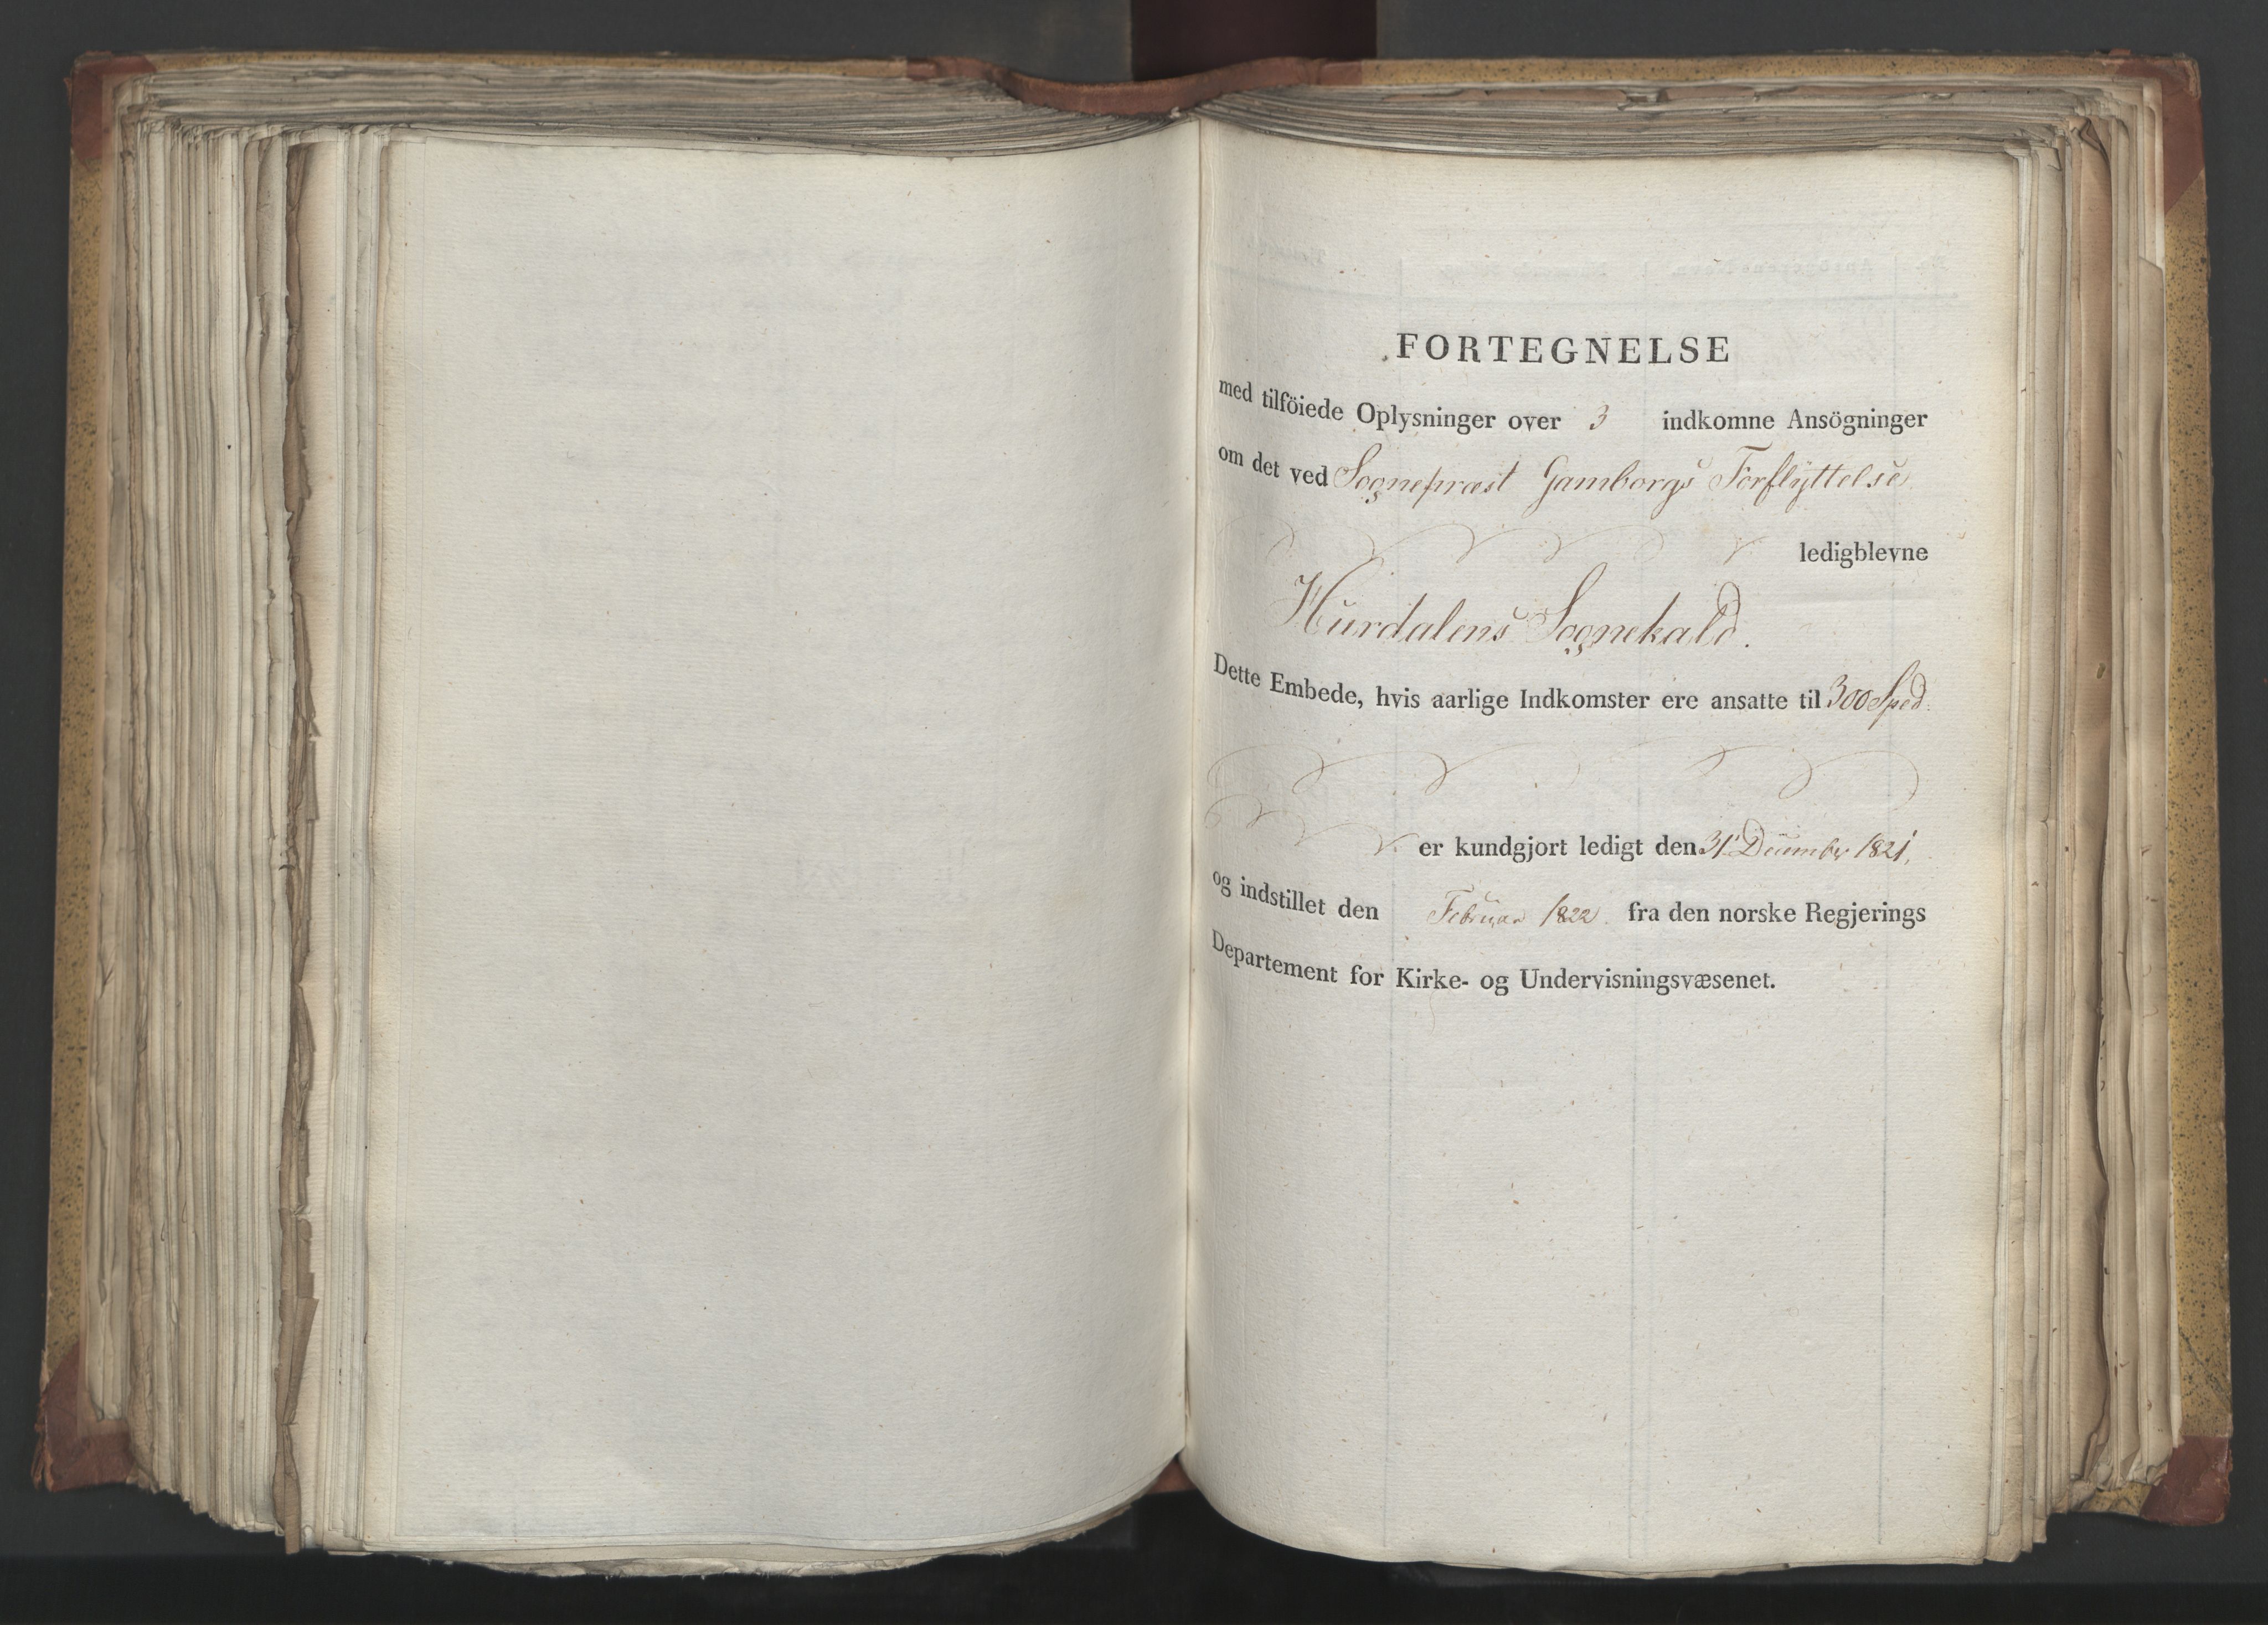 FORTEGNELSE
med tilföiede Oplysninger over 3 indkomne Ansögninger
om det ved Sognepræst Gamborgs Forflyttelse
ledigblevne
Hurdalens Sognekald.
Dette Embede, hvis aarlige Indkomster ere ansatte til 300 Spd.
er kundgjort ledigt den 31 December 1821,
og indstillet den Februar 1822. fra den norske Regjerings
Departement for Kirke- og Undervisningsvæsenet.